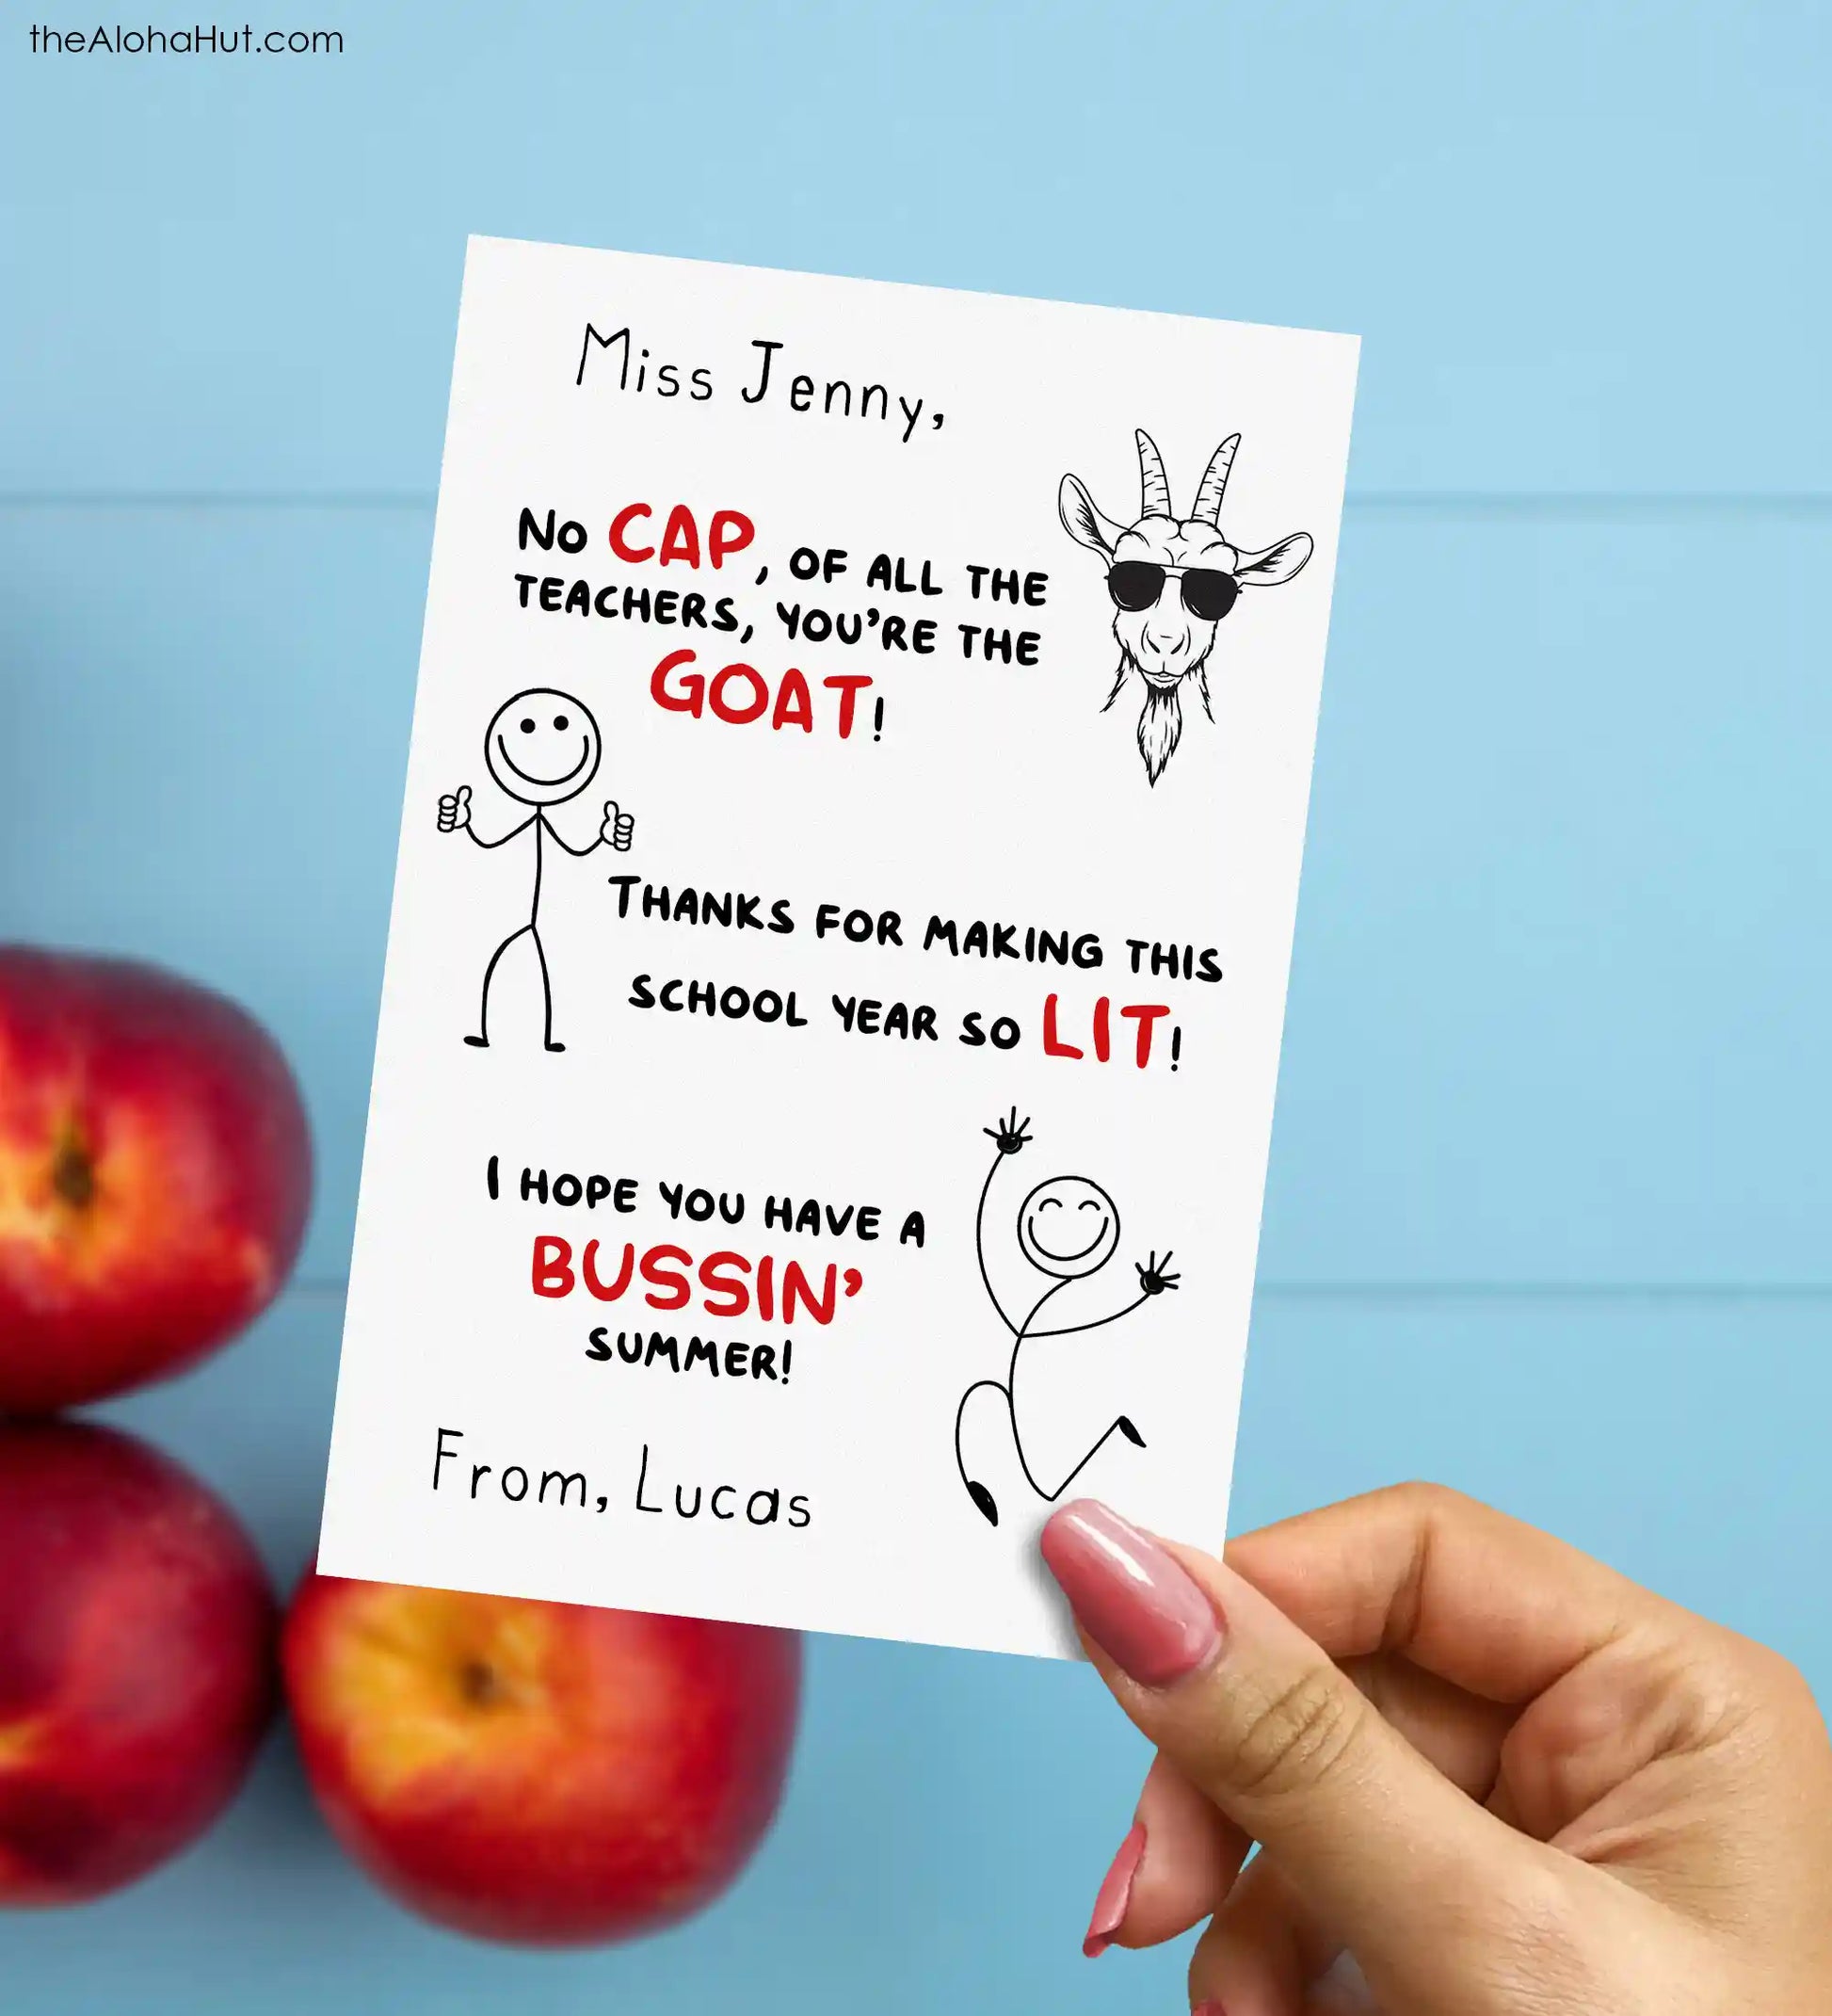 theAlohaHut.com
Miss Jenny,
No CAP, OF ALL THE
TEACHERS, YOU'RE THE
GOAT!
THANKS FOR MAKING THIS
SCHOOL YEAR SO LIT!
I HOPE YOU HAVE A
BUSSIN'
SUMMER!
From, Lucas